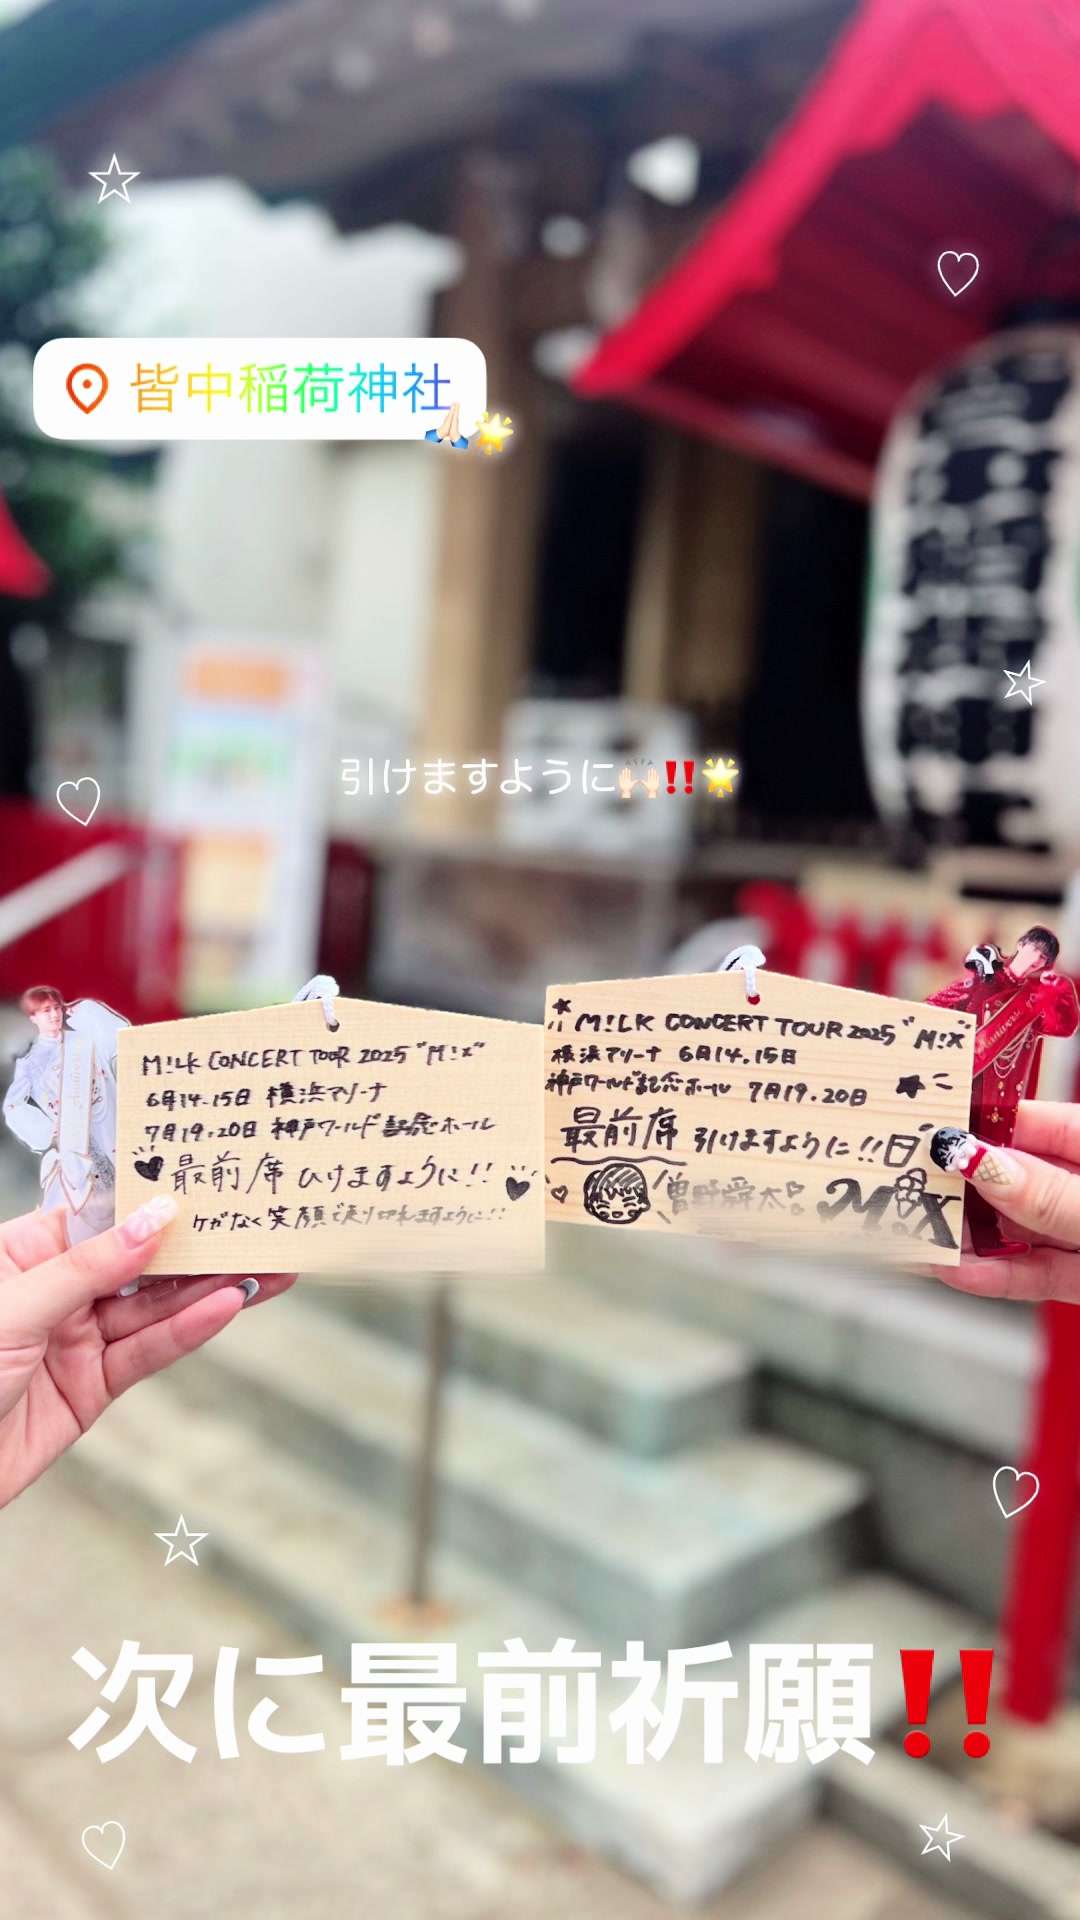 皆中稲荷神社
引けますように🙌🏻‼️🌟
M!LK CONCERT TOUR 2025 "M!X"
6月14.15日 横浜アリーナ
7月19.20日 神戸ワールド記念ホール
最前席 ひけますように!!
ケガなく笑顔で走り切れますように!!
M!LK CONCERT TOUR 2025 "M!X"
横浜アリーナ 6月14.15日
神戸ワールド記念ホール 7月19.20日
最前席 引けますように!!
曽野舜太
M!X
次に最前祈願‼️